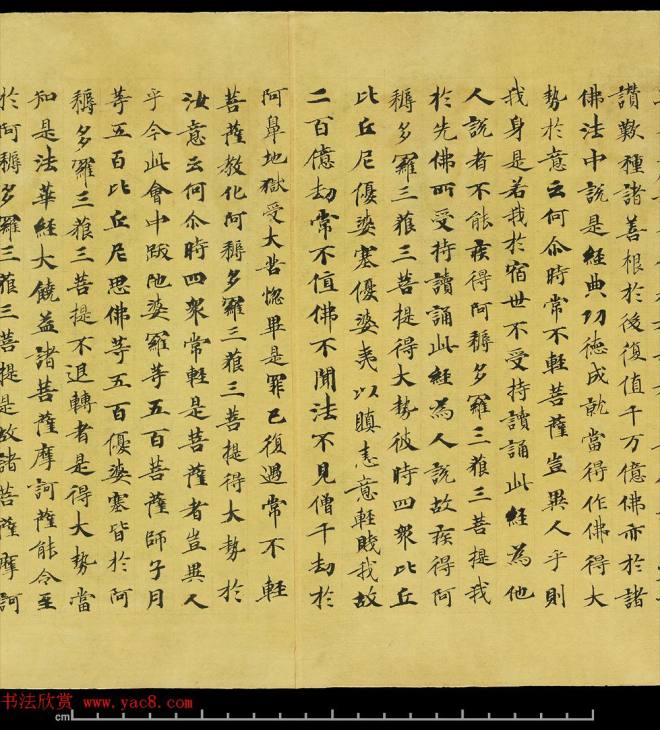 讃歎種諸善根於後復值千万億佛亦於諸
佛法中說是經典功德成就當得作佛得大
勢於意云何尒時常不輕菩薩豈異人乎則
我身是若我於宿世不受持讀誦此經為他
人說者不能疾得阿耨多羅三藐三菩提我
於先佛所受持讀誦此經為人說故疾得阿
耨多羅三藐三菩提得大勢彼時四衆比丘
比丘尼優婆塞優婆夷以瞋恚意輕賤我故
二百億劫常不值佛不聞法不見僧千劫於
阿鼻地獄受大苦惱畢是罪已復遇常不輕
菩薩教化阿耨多羅三藐三菩提得大勢於
汝意云何尒時四衆常輕是菩薩者豈異人
乎今此會中跋陁婆羅等五百菩薩師子月
等五百比丘尼思佛等五百優婆塞皆於阿
耨多羅三藐三菩提不退轉者是得大勢當
知是法華經大饒益諸菩薩摩訶薩能令至
於阿耨多羅三藐三菩提是故諸菩薩摩訶
书法欣赏 www.yac8.com
cm